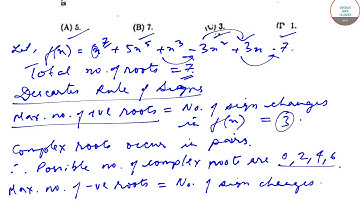 is
(A) 5. (B) 7. (C) 3. (D) 1.
Let, f(x) = x⁷ + 5x⁵ + x³ - 3x² + 3x - 7.
Total no. of roots = 7.
Descartes Rule of Signs
Max. no. of +ve roots = No. of sign changes
in f(x) = 3.
Complex roots occur in pairs.
∴ Possible no. of complex root are 0, 2, 4, 6
Max. no. of -ve roots = No. of sign changes.